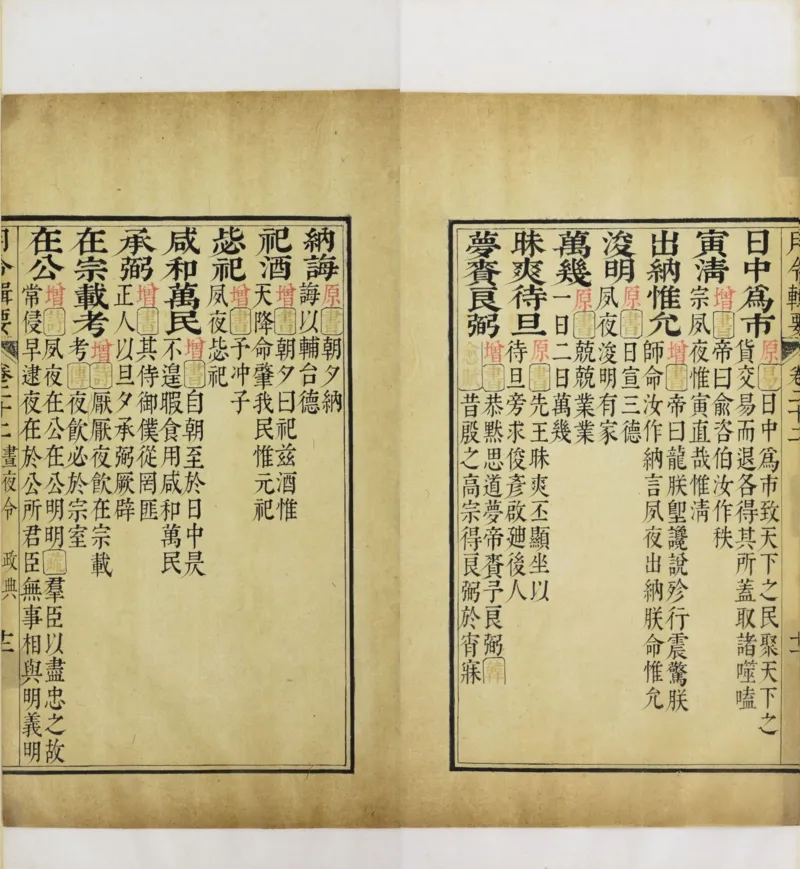 月令輯要 卷二十二
日中爲市 原 易 日中爲市致天下之民聚天下之
貨交易而退各得其所蓋取諸噬嗑
寅淸 增 書 帝曰俞咨伯汝作秩
宗夙夜惟寅直哉惟淸
出納惟允 增 書 帝曰龍朕堲讒說殄行震驚朕
師命汝作納言夙夜出納朕命惟允
浚明 原 書 日宣三德
夙夜浚明有家
萬幾 原 書 兢兢業業
一日二日萬幾
昧爽待旦 原 書 先王昧爽丕顯坐以
待旦旁求俊彥啟廸後人
夢賚良弼 增 書 恭默思道夢帝賚予良弼
昔殷之高宗得良弼於宵寐
納誨 原 書 朝夕納
誨以輔台德
祀酒 增 書 朝夕曰祀茲酒惟
天降命肇我民惟元祀
毖祀 增 書 予冲子
夙夜毖祀
咸和萬民 增 書 自朝至於日中昃
不遑暇食用咸和萬民
承弼 增 書 其侍御僕從罔匪
正人以旦夕承弼厥辟
在宗載考 增 詩 厭厭夜飲在宗載
考 傳 夜飲必於宗室
在公 增 詩 夙夜在公在公明明 疏 羣臣以盡忠之故
常侵早逮夜在於公所君臣無事相與明義明
月令輯要 卷二十二 晝夜令 政典